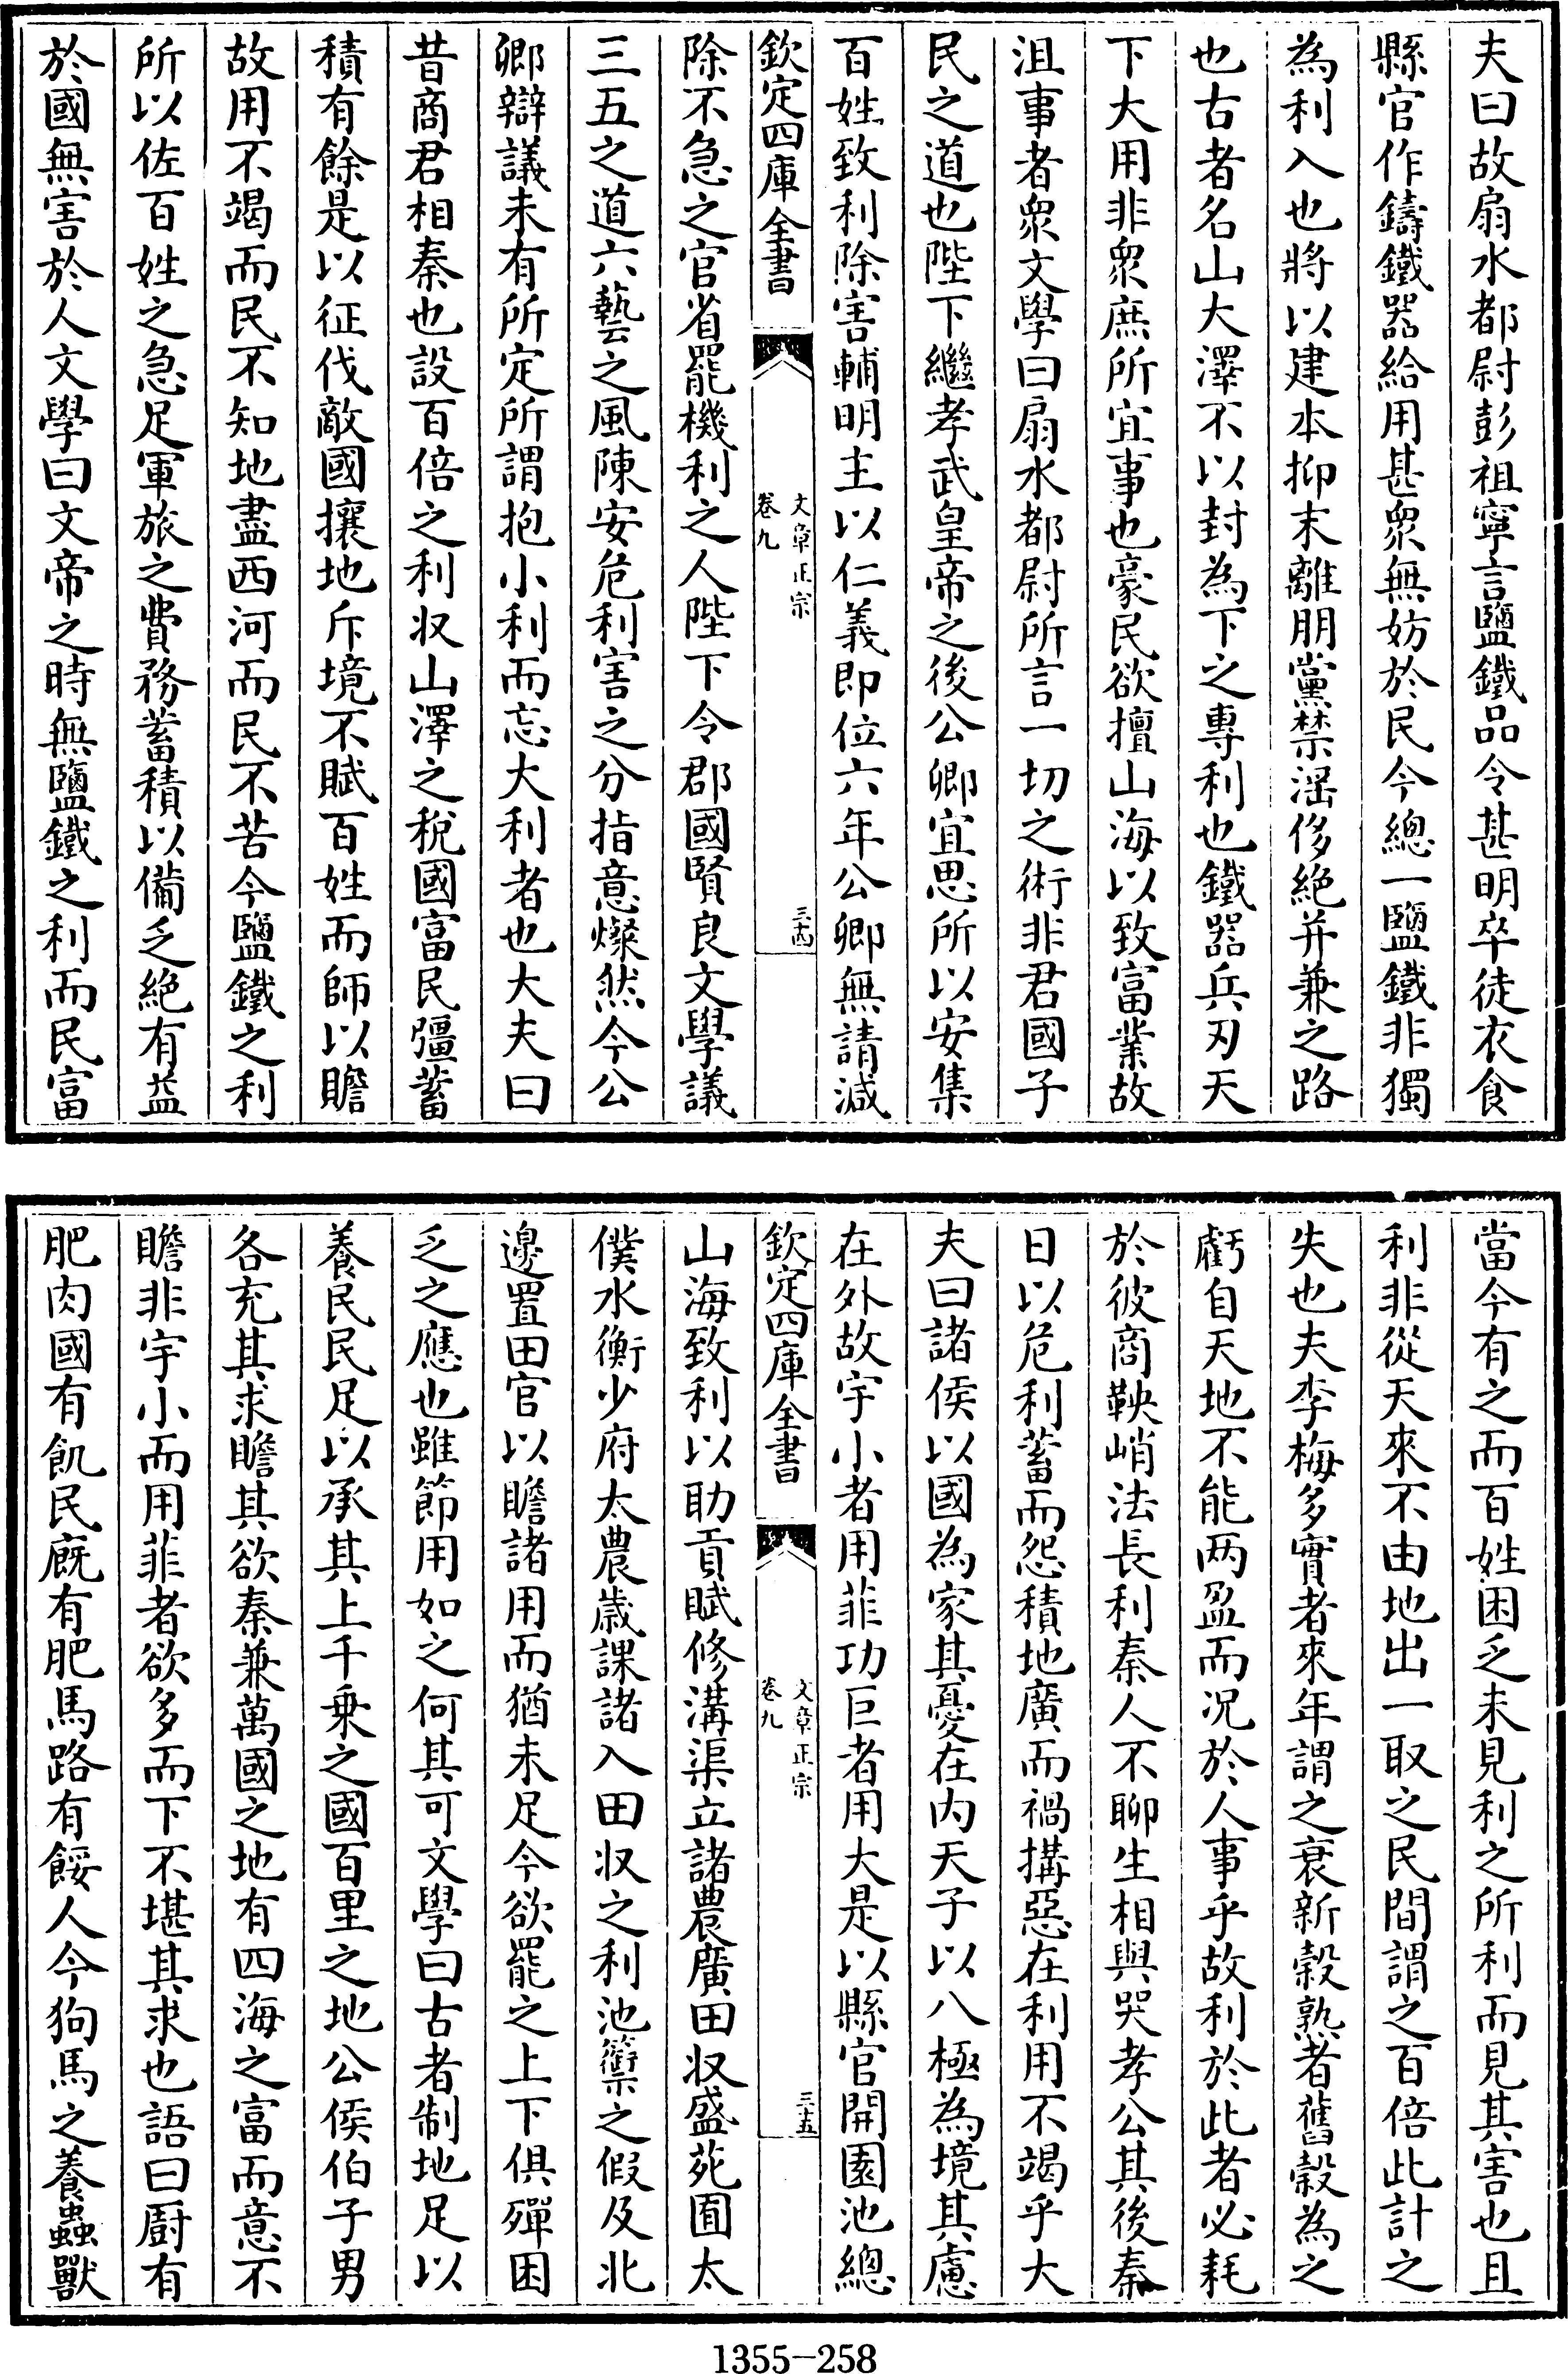 夫曰故扇水都尉彭祖寧言鹽鐵品令甚明卒徒衣食
縣官作鑄鐵器給用甚衆無妨於民今總一鹽鐵非獨
為利入也將以建本抑末離朋黨禁滛侈絶并兼之路
也古者名山大澤不以封為下之專利也鐵器兵刃天
下大用非衆庶所宜事也豪民欲擅山海以致富業故
沮事者衆文學曰扇水都尉所言一切之術非君國子
民之道也陛下繼孝武皇帝之後公卿宜思所以安集
百姓致利除害輔明主以仁義即位六年公卿無請減
欽定四庫全書
文章正宗
卷九
三十四
除不急之官省罷機利之人陛下令郡國賢良文學議
三五之道六藝之風陳安危利害之分指意燦然今公
卿辯議未有所定所謂抱小利而忘大利者也大夫曰
昔商君相秦也設百倍之利収山澤之稅國富民彊蓄
積有餘是以征伐敵國攘地斥境不賦百姓而師以贍
故用不竭而民不知地盡西河而民不苦今鹽鐵之利
所以佐百姓之急足軍旅之費務蓄積以備乏絶有益
於國無害於人文學曰文帝之時無鹽鐵之利而民富
當今有之而百姓困乏未見利之所利而見其害也且
利非從天來不由地出一取之民間謂之百倍此計之
失也夫李梅多實者來年謂之衰新穀熟者舊穀為之
虧自天地不能两盈而况於人事乎故利於此者必耗
於彼商鞅峭法長利秦人不聊生相與哭孝公其後秦
日以危利蓄而怨積地廣而禍搆惡在利用不竭乎大
夫曰諸侯以國為家其憂在内天子以八極為境其慮
在外故宇小者用菲功巨者用大是以縣官開園池總
欽定四庫全書
文章正宗
卷九
三十五
山海致利以助貢賦修溝渠立諸農廣田収盛苑囿太
僕水衡少府太農歳課諸入田収之利池籞之假及北
邊置田官以贍諸用而猶未足今欲罷之上下俱殫困
乏之應也雖節用如之何其可文學曰古者制地足以
養民民足以承其上千乗之國百里之地公侯伯子男
各充其求贍其欲秦兼萬國之地有四海之富而意不
贍非宇小而用菲者欲多而下不堪其求也語曰厨有
肥肉國有飢民廐有肥馬路有餒人今狗馬之養蟲獸
1355-258